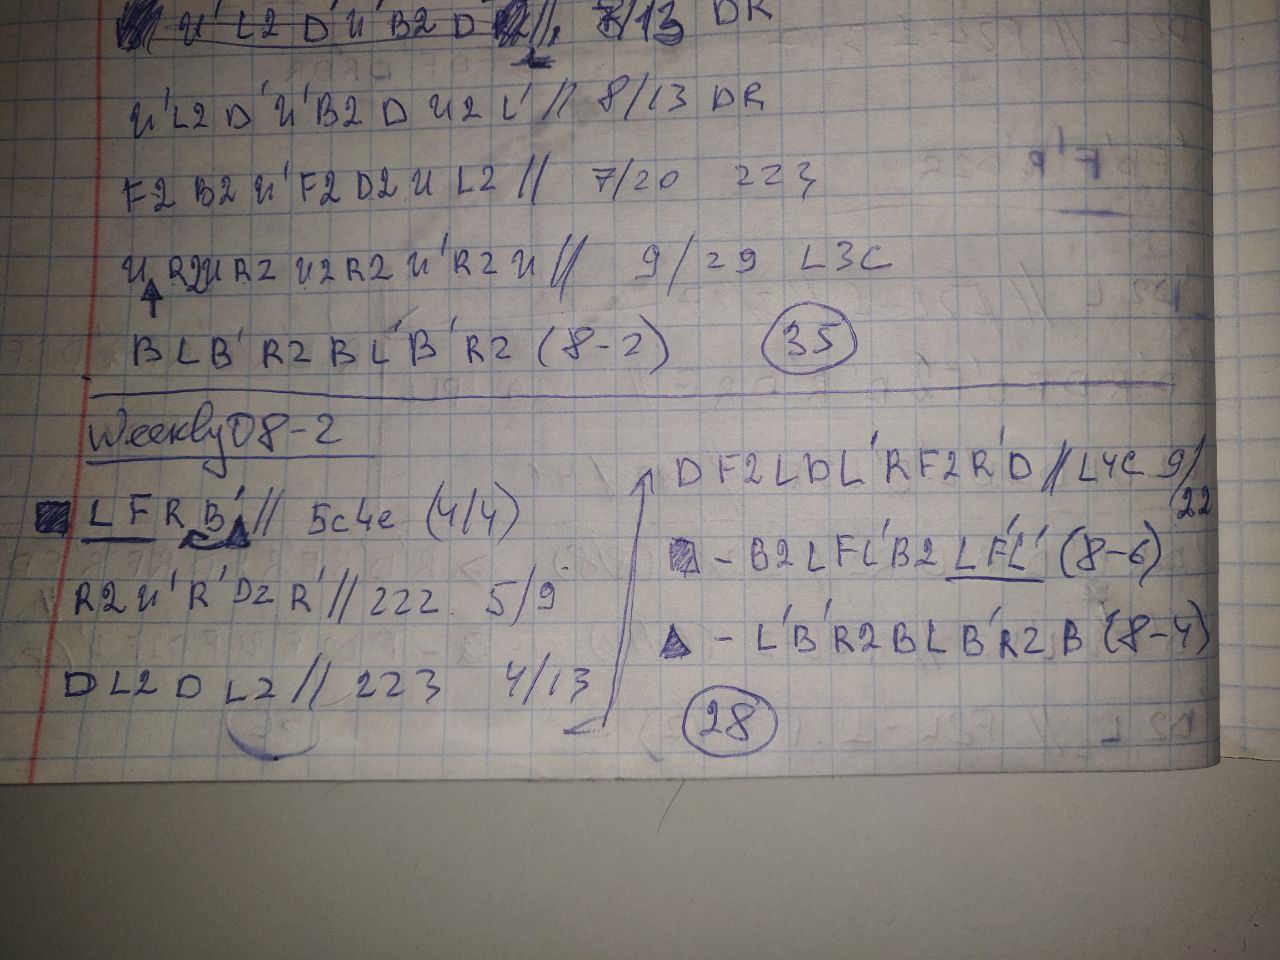 U' L2 D' U' B2 D 2 // 7/13 DR
U' L2 D' U' B2 D U2 L' // 8/13 DR
F2 B2 U' F2 D2 U L2 // 7/20 223
U R2 U R2 U2 R2 U' R2 U // 9/29 L3C
B L B' R2 B L' B' R2 (8-2) 35
Weekly 08-2
L F R B' // 5c4e (4/4)
R2 U' R' D2 R' // 222 5/9
D L2 D L2 // 223 4/13
D F2 L D L' R F2 R' D // L4C 9/22
■ - B2 L F L' B2 L F' L' (8-6)
▲ - L' B' R2 B L B' R2 B (8-4)
28